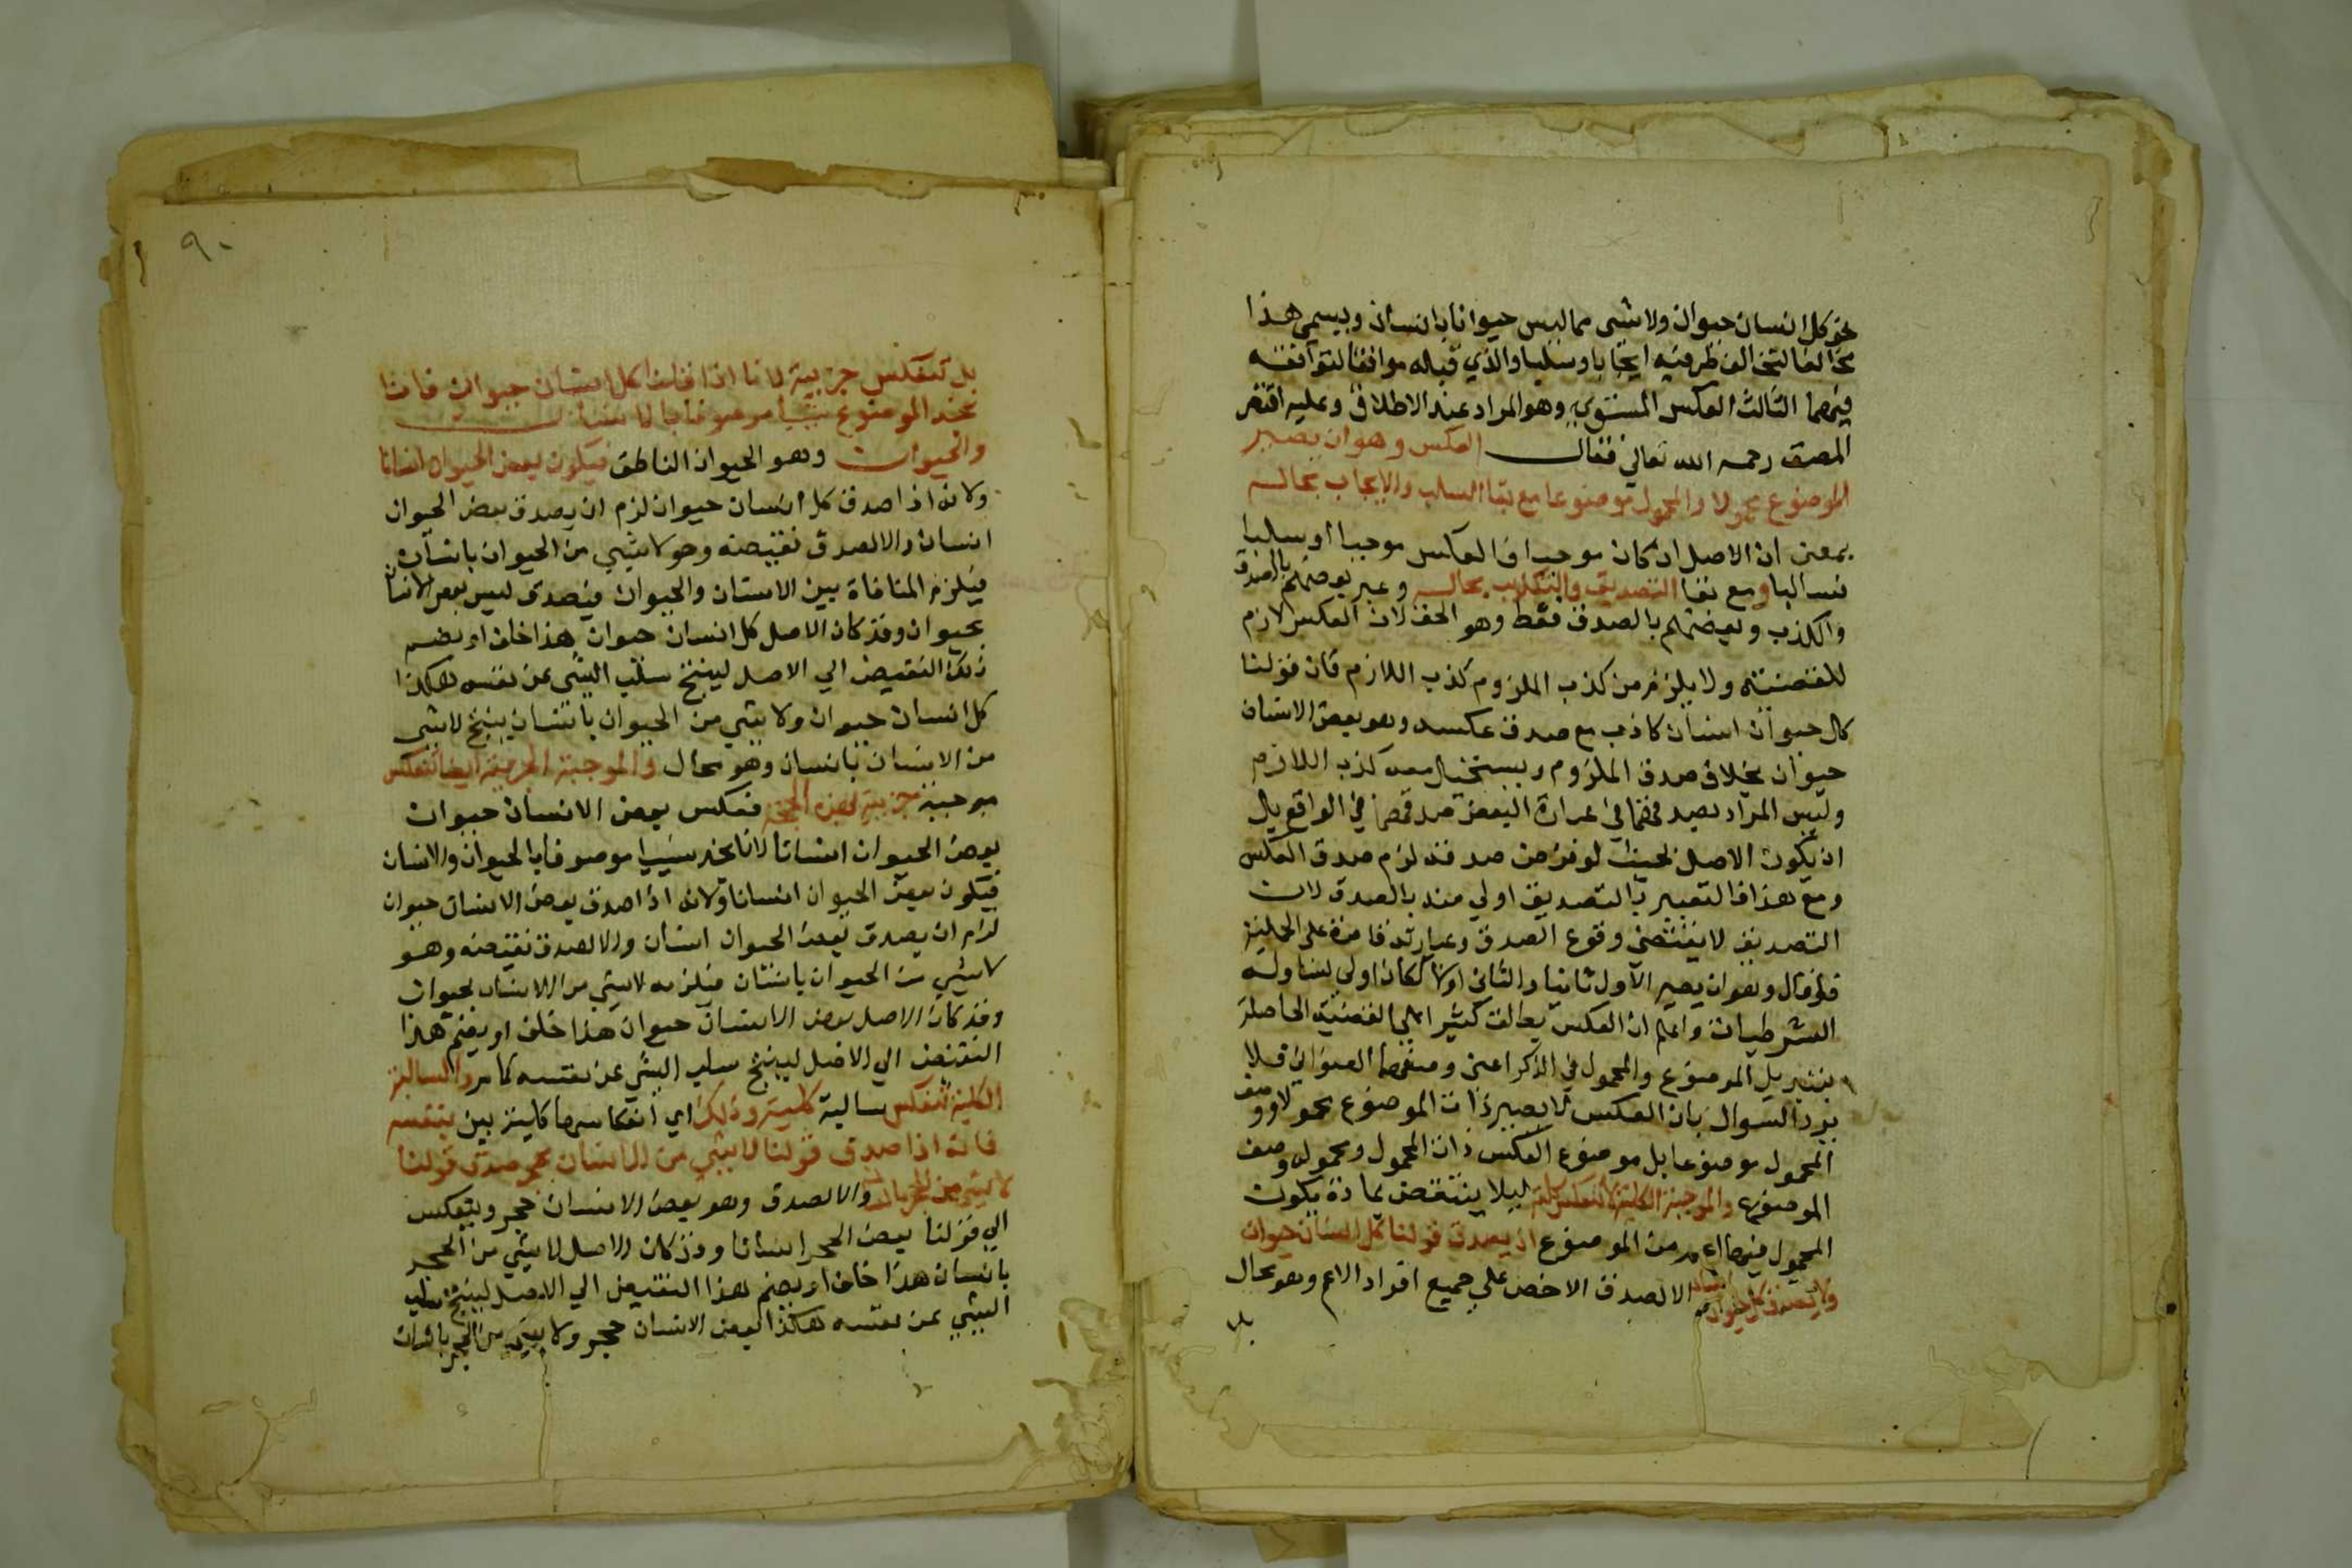 نحو كل انسان حيوان ولا شى مما ليس حيوانا بانسان ويسمى هذا
مخالفا لتخالف طرفيه ايجابا وسلبا والذي قبله موافقا لتوافقه
فيهما الثالث العكس المستوي وهو المراد عند الاطلاق وعليه اقتصر
المصنف رحمه الله تعالي فقال العكس وهو ان يصير
الموضوع محمولا والمحمول موضوعا مع بقا السلب والايجاب بحاله
بمعنى ان الاصل ان كان موجبا فالعكس موجبا او سالبا
فسالبا ومع بقا التصديق والتكذيب بحاله وعبر بعضهم بالصدق
والكذب وبعضهم بالصدق فقط وهو الحق لان العكس لازم
للقضية ولا يلزم من كذب الملزوم كذب اللازم فان قولنا
كل حيوان انسان كاذب مع صدق عكسه وهو بعض الانسان
حيوان بخلاف صدق الملزوم ويستحيل معه كذب اللازم
وليس المراد بصدقهما في عبارة البعض صدقهما في الواقع بل
ان يكون الاصل بحيث لو فرض صدقه لزم صدق العكس
ومع هذا فالتعبير بالتصديق اولي منه بالصدق لان
التصديق لا يقتضي وقوع الصدق وعبارته قاصرة على الحملية
فلو قال وهو ان يصير الاول ثانيا والثاني اولا لكان اولي لتناوله
الشرطيات واعلم ان العكس يطلق كثيرا على القضية الحاصلة
بتبديل الموضوع والمحمول في الذكر اعنى وصفهما العنواني فلا
يرد السوال بان العكس لا يصير ذات الموضوع محمولا ووصف
المحمول موضوعا بل موضوع العكس ذات المحمول ومحموله وصف
الموضوع والموجبة الكلية لا تنعكس كلية ليلا ينتقض بمادة يكون
المحمول فيها اعم من الموضوع اذ يصدق قولنا كل انسان حيوان
ولا يصدق كل حيوان انسان والا لصدق الاخص علي جميع افراد الاعم وهو محال
بل
٩٠
بل تنعكس جزبية لانا اذا قلنا كل انسان حيوان فانا
نجد الموضوع شيأ موصوفا بالانسان
والحيوان وهو الحيوان الناطق فيكون بعض الحيوان انسانا
ولانه اذا صدق كل انسان حيوان لزم ان يصدق بعض الحيوان
انسان والا لصدق نقيضه وهو لا شيي من الحيوان بانسان
فيلزم المنافاة بين الانسان والحيوان فيصدق ليس بعض الانسان
بحيوان وقد كان الاصل كل انسان حيوان هذا خلف او نضم
ذلك النقيض الي الاصل لينتج سلب الشى عن نفسه هكذا
كل انسان حيوان ولا شي من الحيوان بانسان ينتج لا شى
من الانسان بانسان وهو محال والموجبة الجزيية ايضا تنعكس
موجبة جزبية بهذه الحجة فعكس بعض الانسان حيوان
بعض الحيوان انسان لانا نجد شييا موصوفا بالحيوان والانسان
فيكون بعض الحيوان انسانا ولانه اذا صدق بعض الانسان حيوان
لزم ان يصدق بعض الحيوان انسان والا لصدق نقيضه وهو
لا شيي من الحيوان بانسان فيلزمه لا شي من الانسان بحيوان
وقد كان الاصل بعض الانسان حيوان هذا خلف او يضم هذا
النقيض الي الاصل لينتج سلب الشي عن نفسه كما مر والسالبة
الكلية تنعكس سالبة كلية وذلك اي انعكاسها كلية بين بنفسه
فانه اذا صدق قولنا لا شي من الانسان بحجر صدق قولنا
لا شي من الحجر بانسان والا لصدق وهو بعض الانسان حجر وينعكس
الي قولنا بعض الحجر انسان وقد كان الاصل لا شي من الحجر
بانسان هذا خلف او يضم هذا النقيض الي الاصل لينتج سلب
الشي عن نفسه هكذا بعض الانسان حجر ولا شي من الحجر بانسان